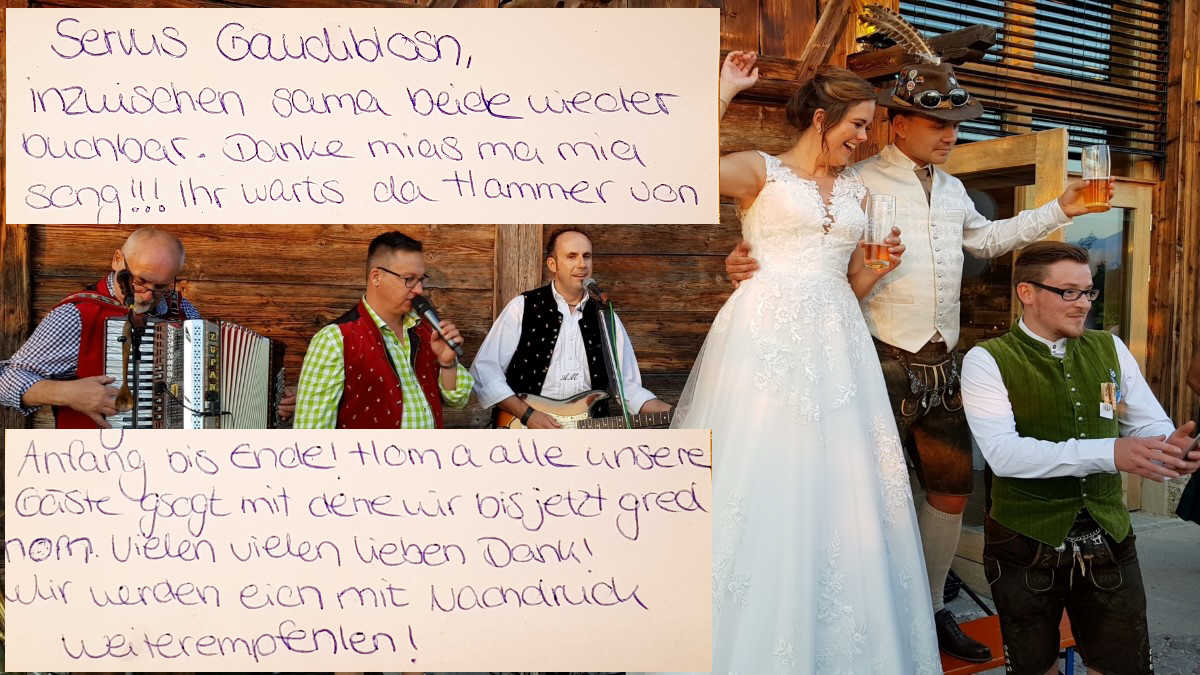 Servus Gaudiblosn,
inzwischen sama beide wieder
buchbar. Danke mias ma mia
song!!! Ihr warts da Hammer von
ZUPAN
Anfang bis Ende! Hom a alle unsere
Gäste gsogt mit dene wir bis jetzt gred
hom. Vielen vielen lieben Dank!
Wir werden eich mit Nachdruck
weiterempfehlen!